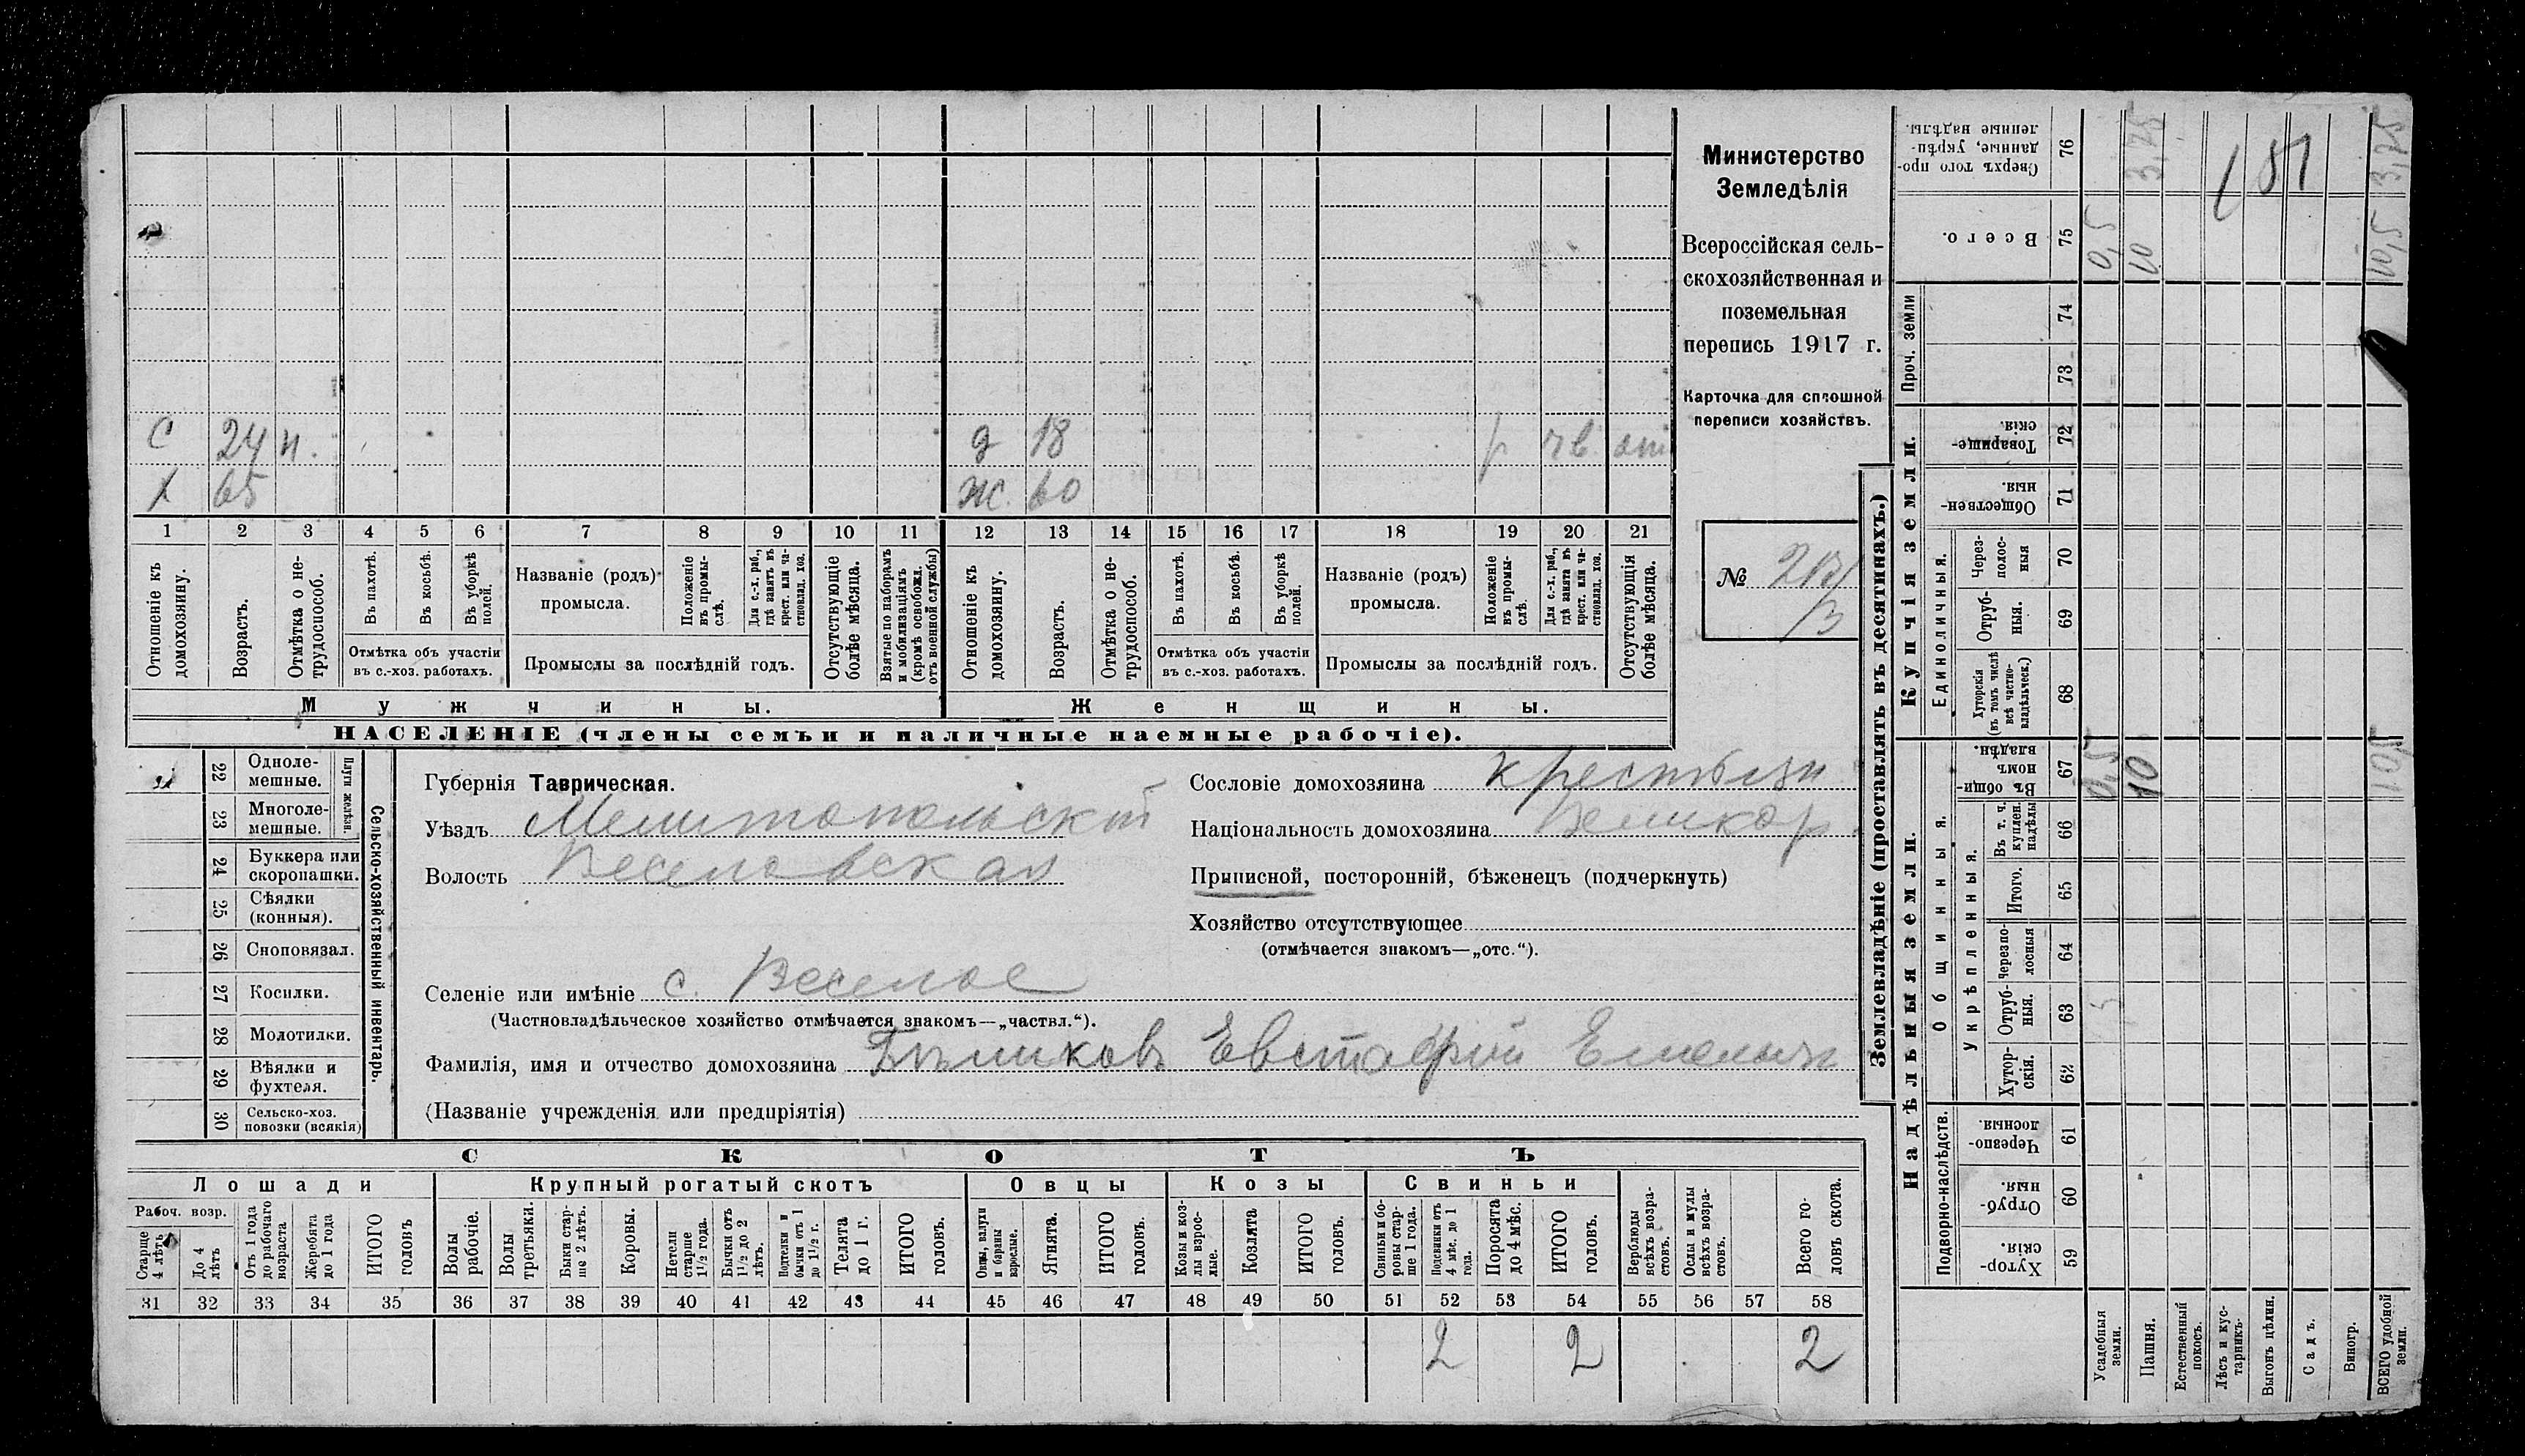 С 24 н. д 18 р
Х 65 Ж. 60
1 2 3 4 5 6 7 8 9 10 11 12 13 14 15 16 17 18 19 20 21
Отношеніе къ домохозяину.
Возрастъ.
Отмѣтка о нетрудоспособ.
Въ пахотѣ.
Въ косьбѣ.
Въ уборкѣ полей.
Отмѣтка объ участіи
въ с.-хоз. работахъ.
Названіе (родъ)
промысла.
Положеніе въ промыслѣ.
Для с.-х. раб., гдѣ занятъ въ крест. или частновлад. хоз.
Промыслы за послѣдній годъ.
Отсутствующіе болѣе мѣсяца.
Взятые по наборамъ и мобилизаціямъ (кромѣ освобожд. отъ военной службы)
Отношеніе къ домохозяину.
Возрастъ.
Отмѣтка о нетрудоспособ.
Въ пахотѣ.
Въ косьбѣ.
Въ уборкѣ полей.
Отмѣтка объ участіи
въ с.-хоз. работахъ.
Названіе (родъ)
промысла.
Положеніе въ промыслѣ.
Для с.-х. раб., гдѣ занята въ крест. или частновлад. хоз.
Промыслы за послѣдній годъ.
Отсутствующія болѣе мѣсяца.
Мужчины. Женщины.
НАСЕЛЕНІЕ (члены семьи и наличные наемные рабочіе).
Министерство
Земледѣлія
Всероссійская сель-
скохозяйственная и
поземельная
перепись 1917 г.
Карточка для сплошной
переписи хозяйствъ.
№
Сельско-хозяйственный инвентарь.
Плуги желѣзн.
22 Одноле-
мешные.
23 Многоле-
мешные.
24 Буккера или
скоропашки.
25 Сѣялки
(конныя).
26 Сноповязал.
27 Косилки.
28 Молотилки.
29 Вѣялки и
фухтеля.
30 Сельско-хоз.
повозки (всякія)
Губернія Таврическая.
Уѣздъ Мелитопольскій
Волость Веселовская
Сословіе домохозяина крестьян
Національность домохозяина Великор.
Приписной, посторонній, бѣженецъ (подчеркнуть)
Хозяйство отсутствующее
(отмѣчается знакомъ—„отс.“).
Селеніе или имѣніе с. Веселое
(Частновладѣльческое хозяйство отмѣчается знакомъ—„частвл.“).
Фамилія, имя и отчество домохозяина Бѣликовъ Евстафій Емельян
(Названіе учрежденія или предпріятія)
СКОТЪ
Лошади Крупный рогатый скотъ Овцы Козы Свиньи
Рабоч. возр.
Старше 4 лѣтъ
До 4 лѣтъ
Отъ 1 года до рабочаго возраста
Жеребята до 1 года
ИТОГО головъ
Волы рабочіе.
Волы третьяки.
Быки старше 2 лѣтъ.
Коровы.
Нетели старше 1½ года.
Бычки отъ 1½ до 2 лѣтъ.
Подтелки и бычки отъ 1 до 1½ г.
Телята до 1 г.
ИТОГО головъ.
Овцы, валухи и бараны взрослые.
Ягнята.
ИТОГО головъ.
Козы и козлы взрослые.
Козлята
ИТОГО головъ.
Свиньи и боровы старше 1 года.
Подсвинки отъ 4 мѣс. до 1 года.
Поросята до 4 мѣс.
ИТОГО головъ.
Верблюды всѣхъ возрастовъ.
Ослы и мулы всѣхъ возрастовъ.
Всего головъ скота.
31 32 33 34 35 36 37 38 39 40 41 42 43 44 45 46 47 48 49 50 51 52 53 54 55 56 57 58
2 2 2
Землевладѣніе (проставлять въ десятинахъ.)
Надѣльныя земли. Купчія земли. Проч. земли
Подворно-наслѣдств.
Общинныя.
Укрѣпленныя.
Единоличныя.
Сверхъ того проданные, укрѣпленные надѣлы. 76
Всего. 75
74
73
Товарищескія. 72
Общественныя. 71
Черезполосныя 70
Отрубныя. 69
Хуторскія (въ томъ числѣ всѣ частновладѣльческ.) 68
Въ общинномъ владѣн. 67
Въ т. ч. куплен. надѣлы 66
Итого. 65
Черезполосныя 64
Отрубныя. 63
Хуторскія. 62
Черезполосныя. 61
Отрубныя. 60
Хуторскія. 59
Усадебныя земли. 0,5 0,5
Пашня. 10 10 3,75
Естественный покосъ.
Лѣсъ и кустарникъ.
Выгонъ цѣлин.
Садъ.
Виногр.
ВСЕГО удобной земли. 10,5 10,5 3,75